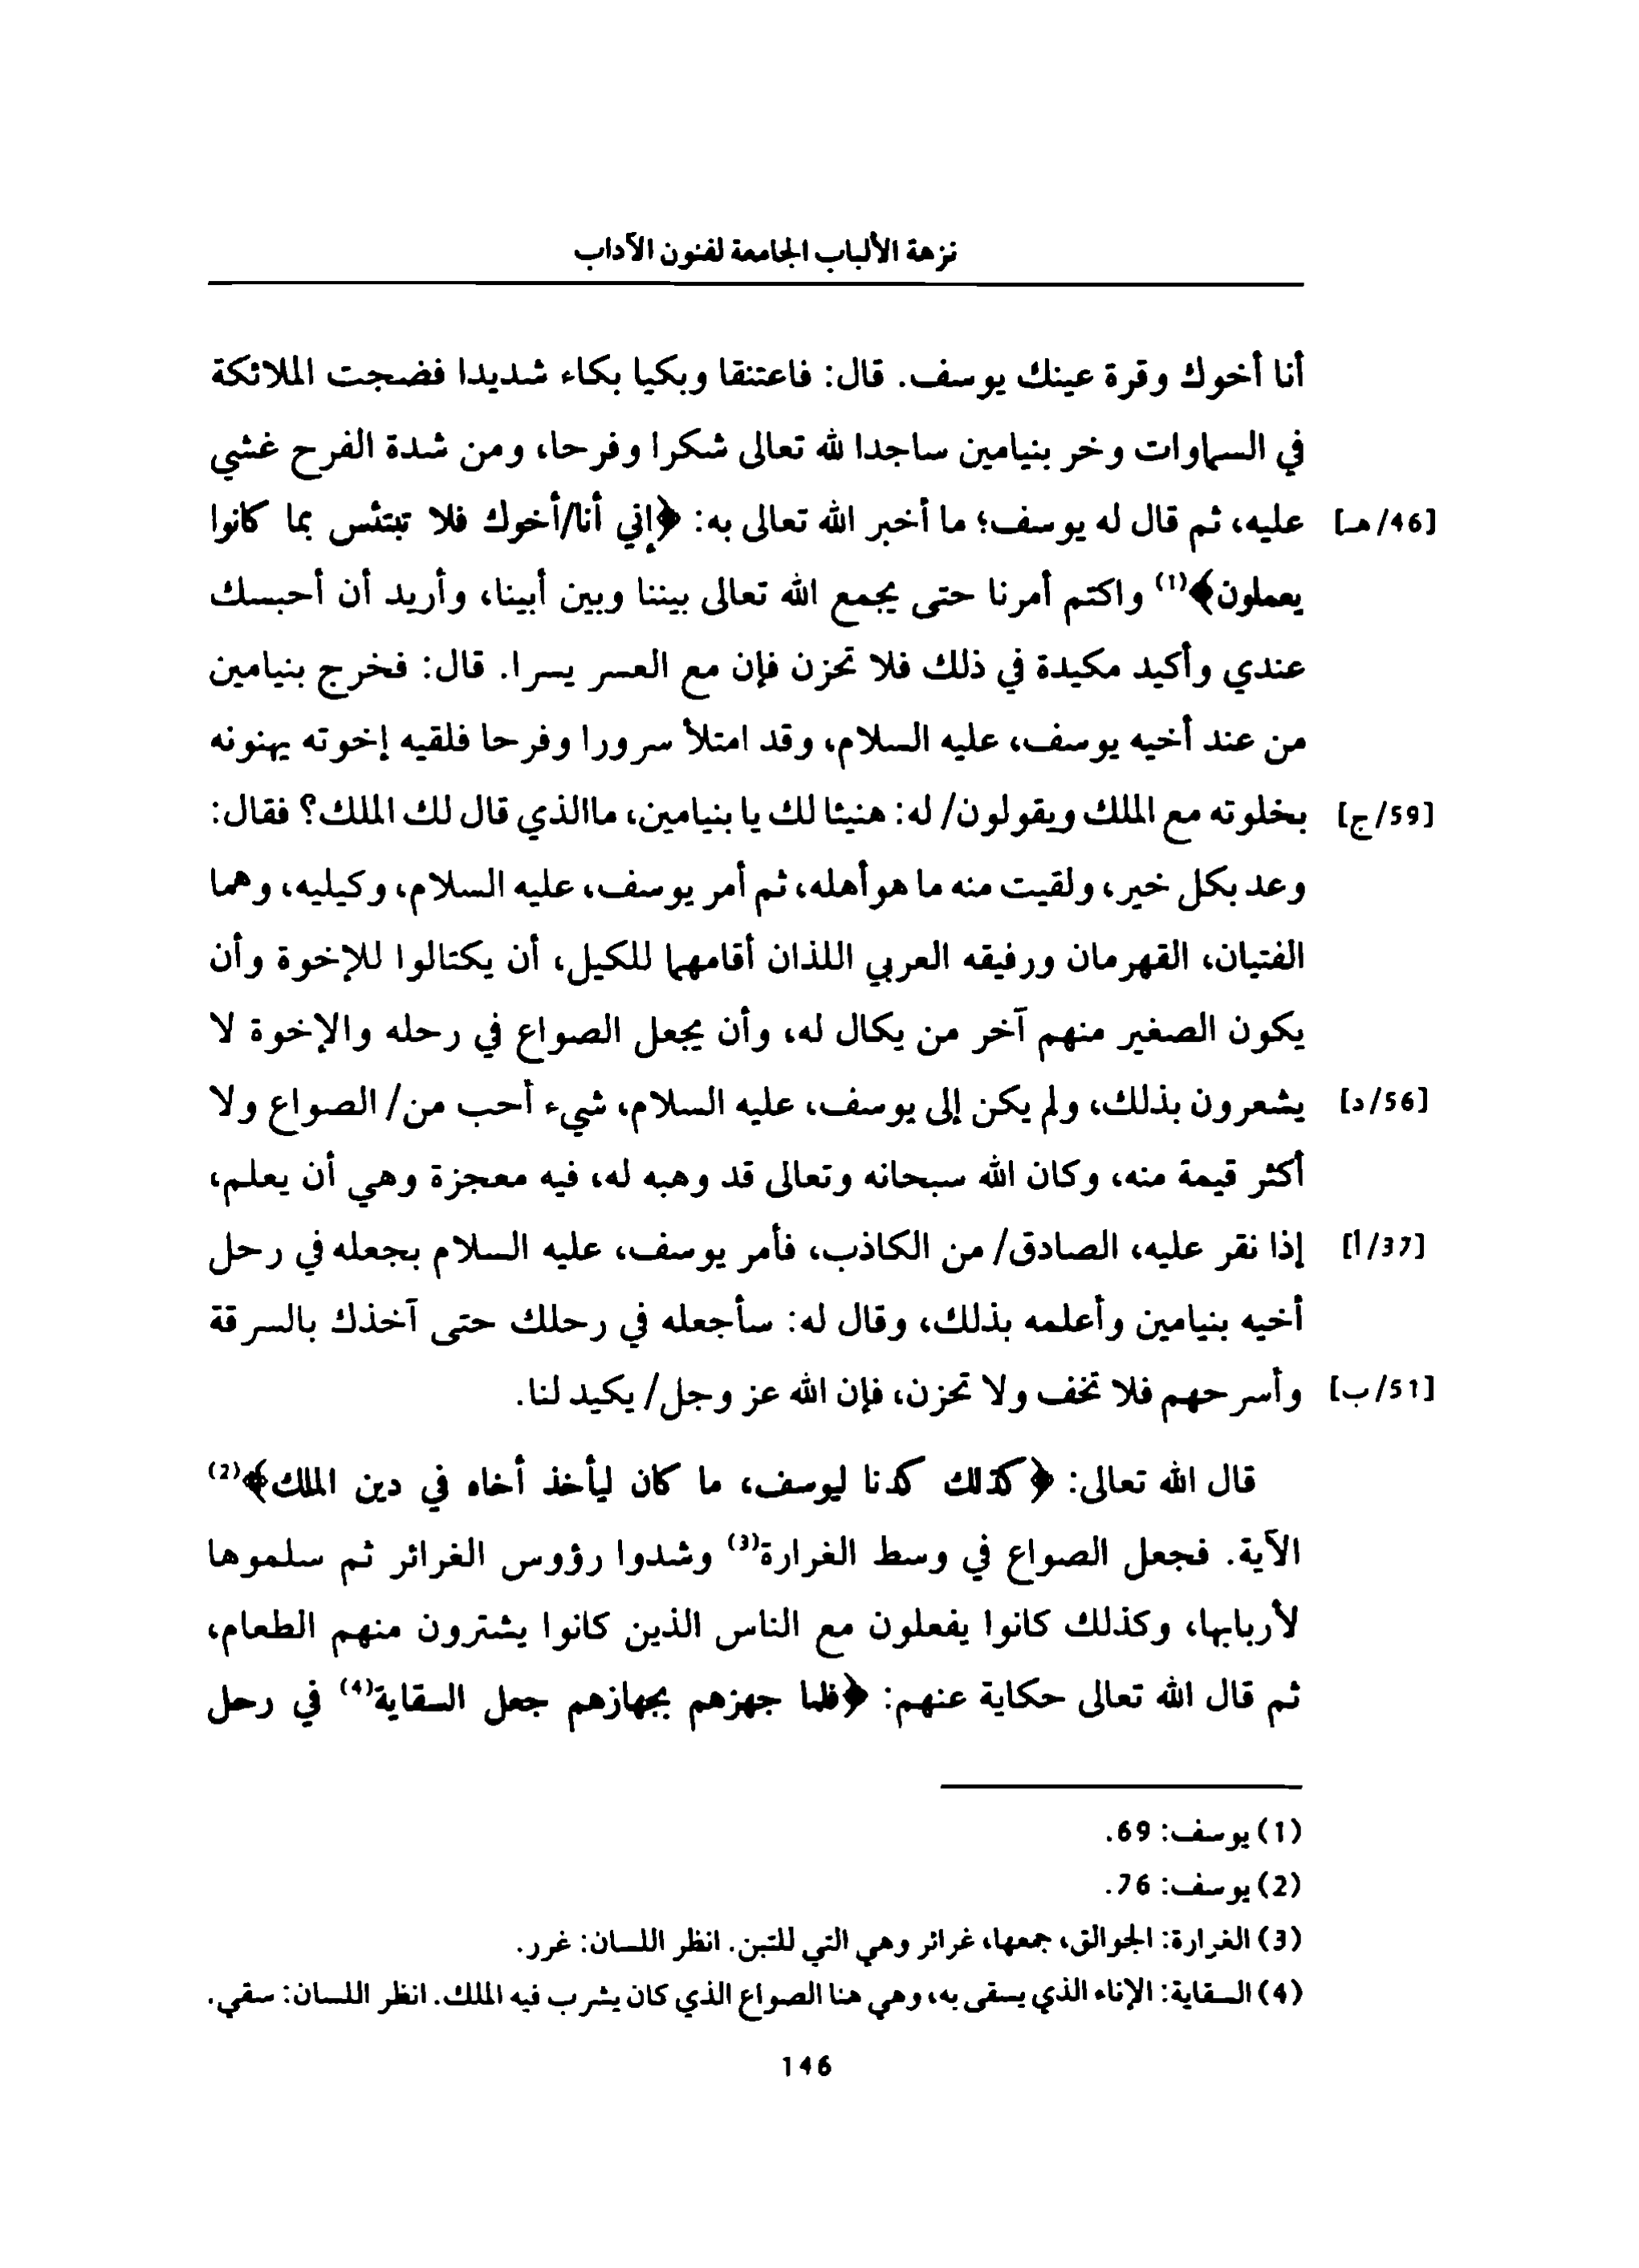 نزهة الألباب الجامعة لفنون الآداب
أنا أخوك وقرة عينك يوسف. قال: فاعتنقا وبكيا بكاء شديدا فضجت الملائكة
في السماوات وخر بنيامين ساجدا لله تعالى شكرا وفرحا، ومن شدة الفرح غشي
[46/هـ] عليه، ثم قال له يوسف؛ ما أخبر الله تعالى به: ﴿إني أنا/أخوك فلا تبتئس بما كانوا
يعملون﴾(1) واكتم أمرنا حتى يجمع الله تعالى بيننا وبين أبينا، وأريد أن أحبسك
عندي وأكيد مكيدة في ذلك فلا تحزن فإن مع العسر يسرا. قال: فخرج بنيامين
من عند أخيه يوسف، عليه السلام، وقد امتلأ سرورا وفرحا فلقيه إخوته يهنونه
[59/ج] بخلوته مع الملك ويقولون/ له: هنيئا لك يا بنيامين، ماالذي قال لك الملك؟ فقال:
وعد بكل خير، ولقيت منه ما هو أهله، ثم أمر يوسف، عليه السلام، وكيليه، وهما
الفتيان، القهرمان ورفيقه العربي اللذان أقامهما للكيل، أن يكتالوا للإخوة وأن
يكون الصغير منهم آخر من يكال له، وأن يجعل الصواع في رحله والإخوة لا
[56/د] يشعرون بذلك، ولم يكن إلى يوسف، عليه السلام، شيء أحب من/ الصواع ولا
أكثر قيمة منه، وكان الله سبحانه وتعالى قد وهبه له، فيه معجزة وهي أن يعلم،
[37/أ] إذا نقر عليه، الصادق/ من الكاذب، فأمر يوسف، عليه السلام بجعله في رحل
أخيه بنيامين وأعلمه بذلك، وقال له: سأجعله في رحلك حتى آخذك بالسرقة
[51/ب] وأسرحهم فلا تخف ولا تحزن، فإن الله عز وجل/ يكيد لنا.
قال الله تعالى: ﴿كذلك كدنا ليوسف، ما كان ليأخذ أخاه في دين الملك﴾(2)
الآية. فجعل الصواع في وسط الغرارة(3) وشدوا رؤوس الغرائر ثم سلموها
لأربابها، وكذلك كانوا يفعلون مع الناس الذين كانوا يشترون منهم الطعام،
ثم قال الله تعالى حكاية عنهم: ﴿فلما جهزهم بجهازهم جعل السقاية(4) في رحل
(1) يوسف: 69.
(2) يوسف: 76.
(3) الغرارة: الجوالق، جمعها، غرائر وهي التي للتبن. انظر اللسان: غرر.
(4) السقاية: الإناء الذي يسقى به، وهي هنا الصواع الذي كان يشرب فيه الملك. انظر اللسان: سقي.
146